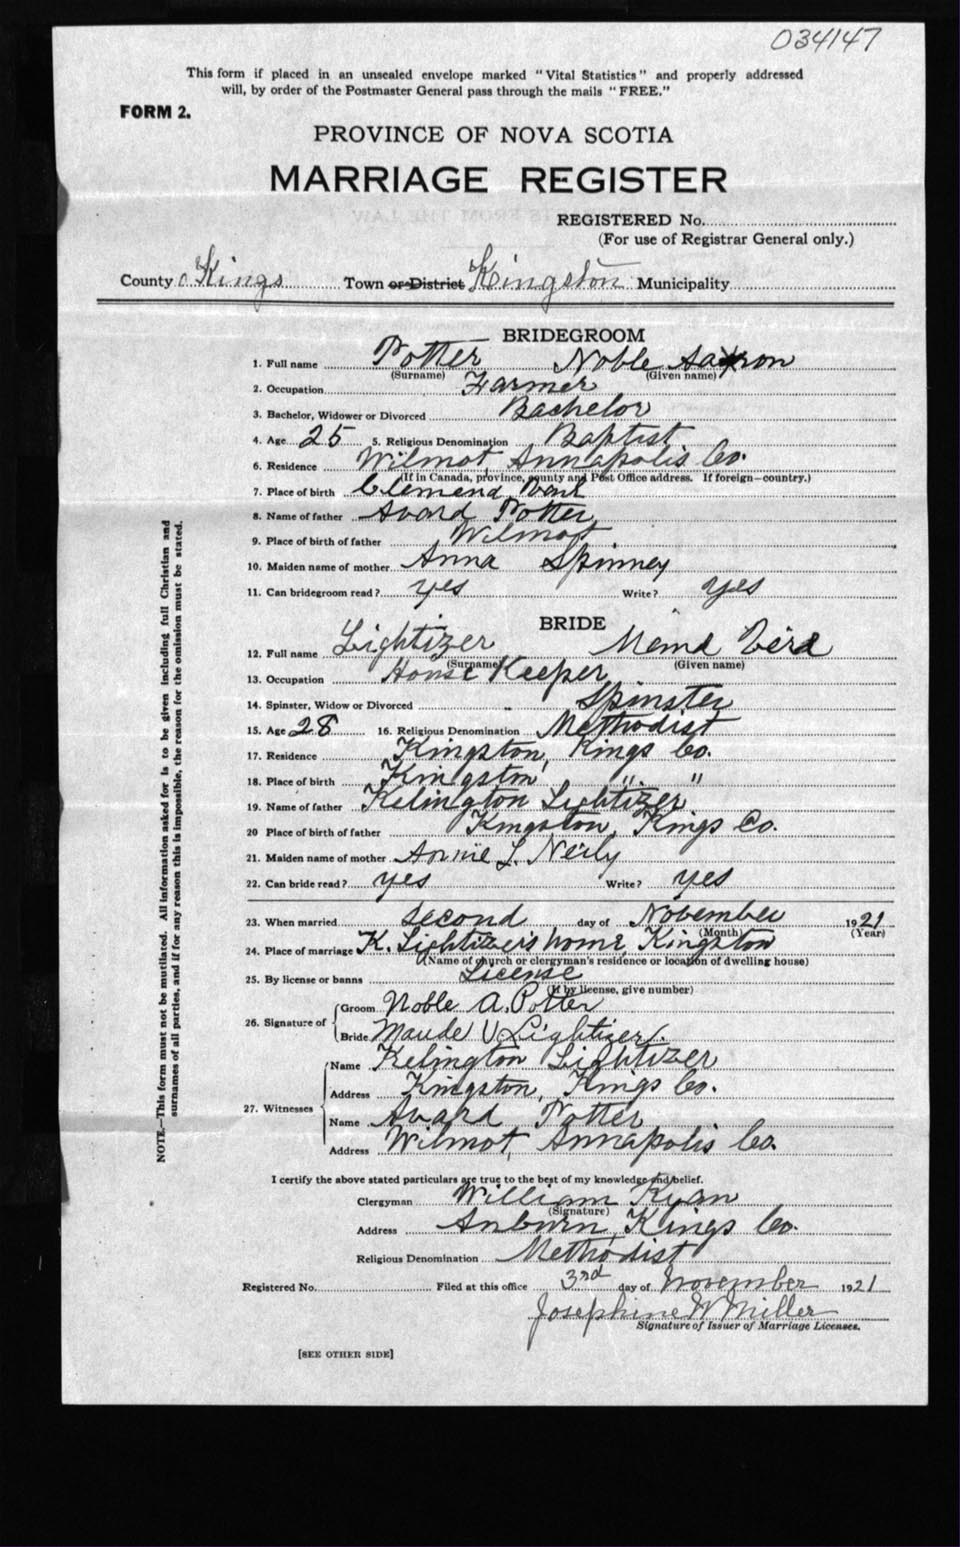 034147
This form if placed in an unsealed envelope marked "Vital Statistics" and properly addressed
will, by order of the Postmaster General pass through the mails "FREE."
FORM 2.
PROVINCE OF NOVA SCOTIA
MARRIAGE REGISTER
REGISTERED No.
(For use of Registrar General only.)
County Kings Town or District Kingston Municipality
BRIDEGROOM
1. Full name Potter Noble Aaron
(Surname) (Given name)
2. Occupation Farmer
3. Bachelor, Widower or Divorced Bachelor
4. Age 25 5. Religious Denomination Baptist
6. Residence Wilmot, Annapolis Co.
(If in Canada, province, county and Post Office address. If foreign—country.)
7. Place of birth
8. Name of father Avard Potter
9. Place of birth of father Wilmot
10. Maiden name of mother Anna Spinney
11. Can bridegroom read? yes Write? yes
BRIDE
12. Full name Lightizer
(Surname) (Given name)
13. Occupation House Keeper
14. Spinster, Widow or Divorced Spinster
15. Age 28 16. Religious Denomination Methodist
17. Residence Kingston, Kings Co.
18. Place of birth Kingston " "
19. Name of father Kelington Lightizer
20 Place of birth of father Kingston, Kings Co.
21. Maiden name of mother Annie L. Neily
22. Can bride read? yes Write? yes
23. When married second day of November 1921
(Month) (Year)
24. Place of marriage K. Lightizer's home, Kingston
(Name of church or clergyman's residence or location of dwelling house)
25. By license or banns License
(If by license, give number)
26. Signature of Groom Noble A. Potter
Bride Maude V. Lightizer
27. Witnesses Name Kelington Lightizer
Address Kingston, Kings Co.
Name Avard Potter
Address Wilmot, Annapolis Co.
I certify the above stated particulars are true to the best of my knowledge and belief.
Clergyman William Ryan
(Signature)
Address Auburn, Kings Co.
Religious Denomination Methodist
Registered No. Filed at this office 3rd day of November 1921
Josephine W Miller
Signature of Issuer of Marriage Licenses.
[SEE OTHER SIDE]
NOTE.—This form must not be mutilated. All information asked for is to be given including full Christian and
surnames of all parties, and if for any reason this is impossible, the reason for the omission must be stated.